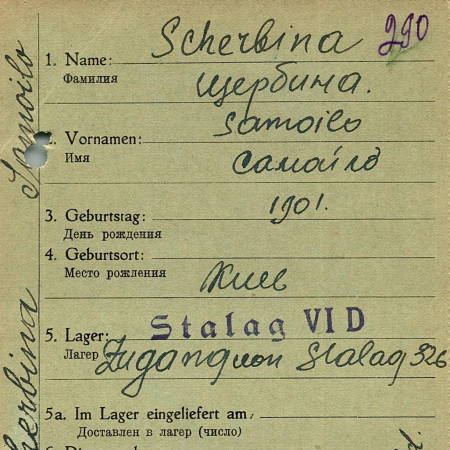 Scherbina 290
1. Name:
Фамилия
Щербина.
Samoilo
2. Vornamen:
Имя
Самайло
1901.
3. Geburtstag:
День рождения
4. Geburtsort:
Место рождения
Киев
5. Lager: Stalag VI D
Лагерь Zugang von Stalag 326
5a. Im Lager eingeliefert am:
Доставлен в лагерь (число)
Samoilo
Scherbina